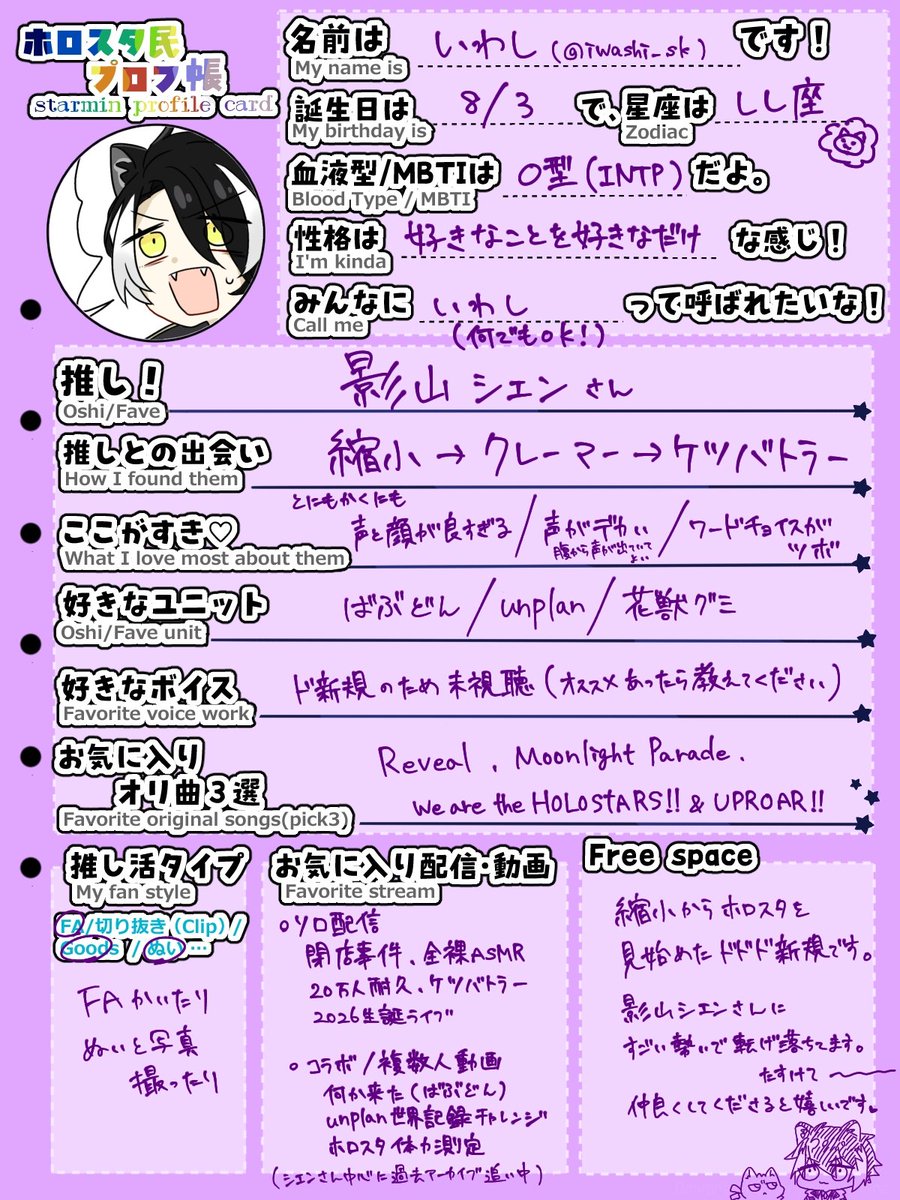 ホロスタ民
プロフ帳
starmin profile card
名前は いわし (@iwashi_sk) です！
My name is
誕生日は 8/3 で、星座は しし座
My birthday is Zodiac
血液型/MBTIは O型 (INTP) だよ。
Blood Type / MBTI
性格は 好きなことを好きなだけ な感じ！
I'm kinda
みんなに いわし って呼ばれたいな！
Call me (何でもok!)
推し！ 影山シエンさん
Oshi/Fave
推しとの出会い 縮小→クレーマー→ケツバトラー
How I found them
とにもかくにも
ここがすき♡ 声と顔が良すぎる / 声がデカい / ワードチョイスが
腹から声が出ていて ツボ
よい
What I love most about them
好きなユニット ばぶどん / unplan / 花獣グミ
Oshi/Fave unit
好きなボイス ド新規のため未視聴 (オススメあったら教えてください)
Favorite voice work
お気に入り Reveal 、Moonlight Parade、
オリ曲３選 We are the HOLOSTARS!! & UPROAR!!
Favorite original songs(pick3)
推し活タイプ
My fan style
FA/切り抜き (Clip) /
Goods / ぬい …
FAかいたり
ぬいと写真
撮ったり
お気に入り配信・動画
Favorite stream
○ソロ配信
閉店事件、全裸ASMR
20万人耐久、ケツバトラー
2026生誕ライブ
○コラボ/複数人動画
何か来た(ばぶどん)
unplan世界記録チャレンジ
ホロスタ体力測定
(シエンさん中心に過去アーカイブ追い中)
Free space
縮小からホロスタを
見始めたドドド新規です。
影山シエンさんに
すごい勢いで転げ落ちてます。
たすけて〜
仲良くしてくださると嬉しいです。